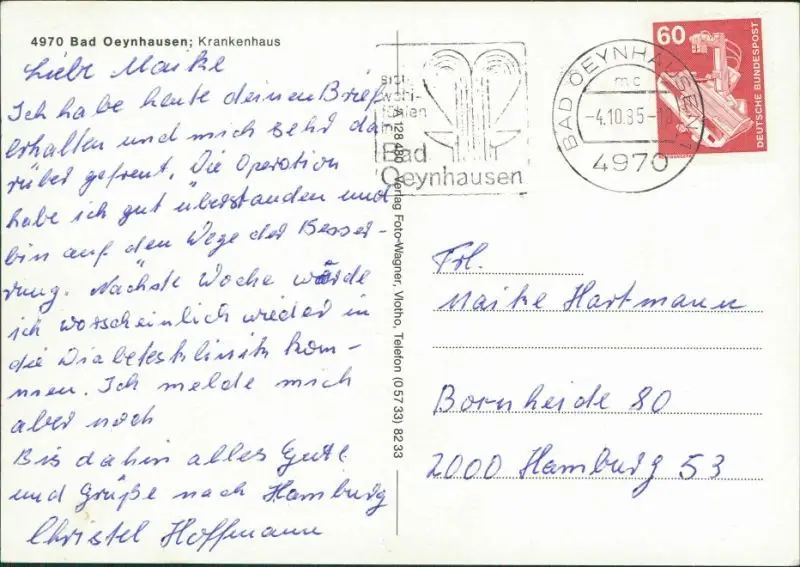 4970 Bad Oeynhausen; Krankenhaus
Liebe Maike
Ich habe heute deinen Brief
erhalten und mich sehr da
rüber gefreut. Die Operation
habe ich gut überstanden und
bin auf den Wege der Besser-
rung. Nächste Woche würde
ich worscheinlich wieder in
die Diabetesklinik kom-
men. Ich melde mich
aber noch
Bis dahin alles Gute
und Grüße nach Hamburg
Christel Hoffmann
Verlag Foto-Wagner, Vlotho, Telefon (0 57 33) 82 33
Bad
Oeynhausen
BAD OEYNHAUSEN 1
mc
-4.10.85-18
4970
60
DEUTSCHE BUNDESPOST
Frl.
Maike Hartmann
Bornheide 80
2000 Hamburg 53